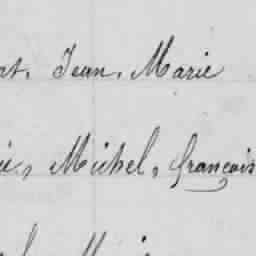 at, Jean, Marie
Michel, françois